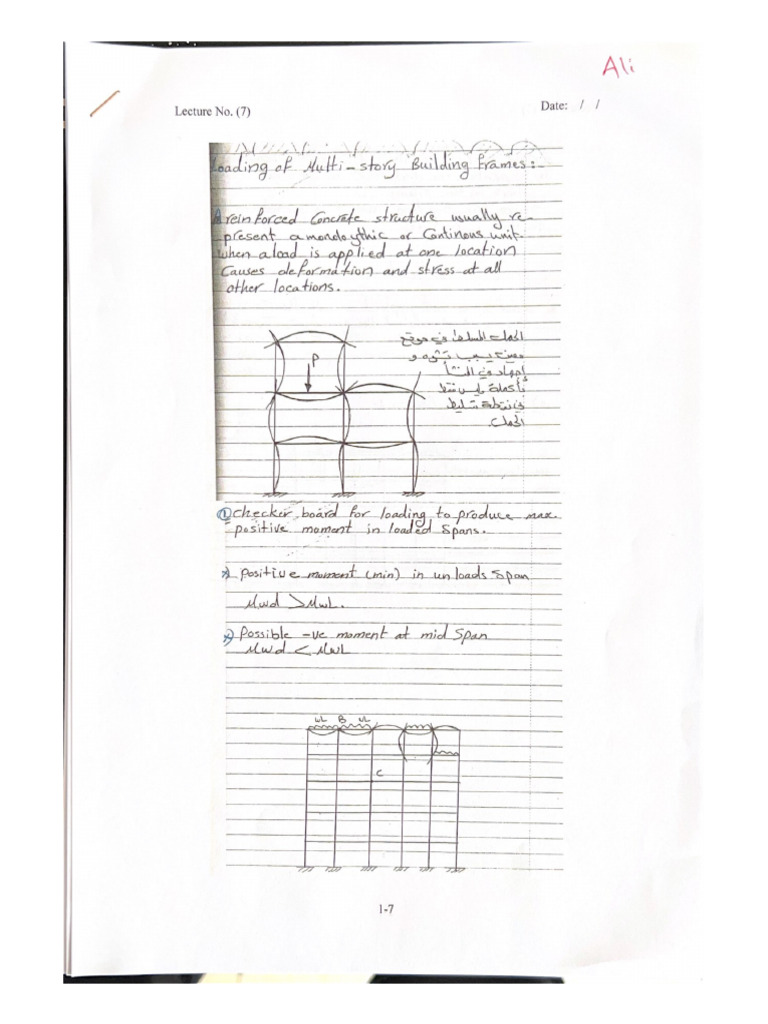 Ali
Lecture No. (7)
Date: / /
Loading of Multi-story Building Frames:
A reinforced Concrete structure usually re-
present a monoloythic or Continous unit.
when a load is applied at one location
Causes deformation and stress at all
other locations.
الحمل المسلط في موقع
معين يسبب تشوه و
إجهاد في المنشأ
بأكمله وليس فقط
في نقطة تسليط
الحمل.
P
① Checker board for loading to produce max.
positive moment in loaded Spans.
positive moment (min) in unloads Span
Mwd > MwL.
Possible -ve moment at mid Span
Mwd < MwL
wL B wL
C
1-7